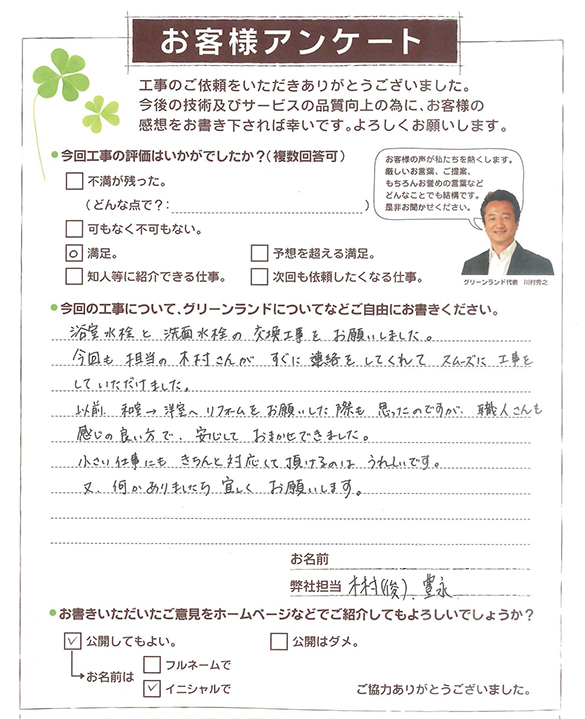 お客様アンケート
工事のご依頼をいただきありがとうございました。
今後の技術及びサービスの品質向上の為に、お客様の
感想をお書き下されば幸いです。よろしくお願いします。
今回工事の評価はいかがでしたか?(複数回答可)
不満が残った。
(どんな点で?: )
可もなく不可もない。
満足。 予想を超える満足。
知人等に紹介できる仕事。 次回も依頼したくなる仕事。
お客様の声が私たちを熱くします。
厳しいお言葉、ご提案、
もちろんお誉めの言葉など
どんなことでも結構です。
是非お聞かせください。
グリーンランド代表 川村秀之
今回の工事について、グリーンランドについてなどご自由にお書きください。
浴室水栓と洗面水栓の交換工事をお願いしました。
今回も担当の木村さんがすぐに連絡をしてくれてスムーズに工事を
していただけました。
以前、和室→洋室へリフォームをお願いした際も思ったのですが、職人さんも
感じの良い方で、安心しておまかせできました。
小さい仕事にもきちんと対応して頂けるのはうれしいです。
又、何かありましたら宜しくお願いします。
お名前
弊社担当 木村(俊)、豊永
お書きいただいたご意見をホームページなどでご紹介してもよろしいでしょうか?
公開してもよい。 公開はダメ。
お名前は フルネームで
イニシャルで
ご協力ありがとうございました。